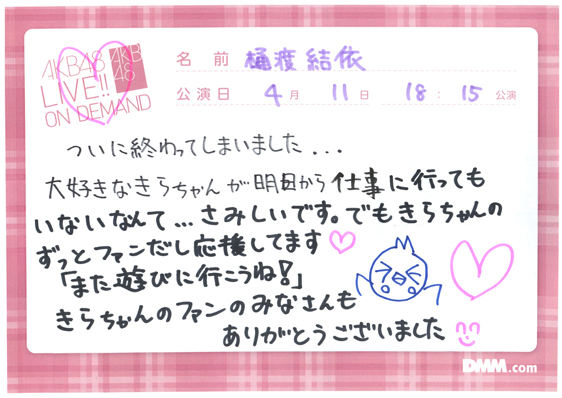 AKB48
LIVE!!
ON DEMAND
AKB
48
名前 樋渡結依
公演日 4月 11日 18:15公演
ついに終わってしまいました...
大好きなきらちゃんが明日から仕事に行っても
いないなんて...さみしいです。でもきらちゃんの
ずっとファンだし応援してます♡
「また遊びに行こうね!」
きらちゃんのファンのみなさんも
ありがとうございました
DMM.com